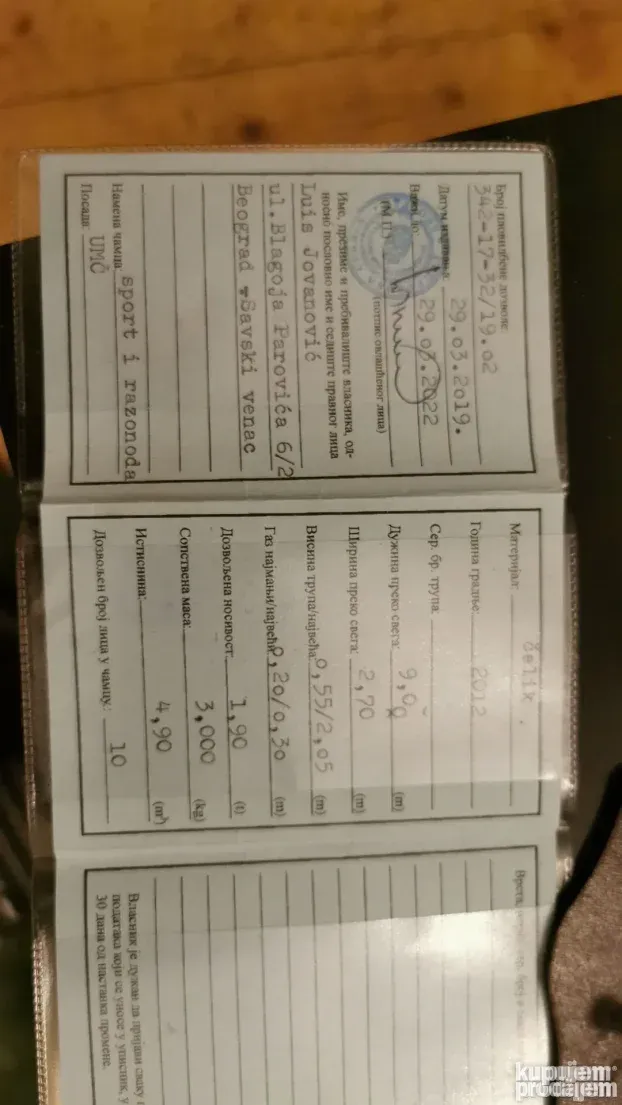 Број пловидбене дозволе:
342-17-32/19.02
Датум издавања:
29.03.2019.
Важи до:
29.03.2022
(М.П.)
(потпис овлашћеног лица)
Име, презиме и пребивалиште власника, од-
носно пословно име и седиште правног лица
Luis Jovanović
ul.Blagoja Parovića 6/2
Beograd Savski venac
Намена чамца: sport i razonoda
Посада: UMČ
Материјал: čelik.
Година градње: 2012
Сер. бр. трупа:
Дужина преко свега: 9,00 (m)
Ширина преко свега: 2,70 (m)
Висина трупа/највећа: 0,55/2,05 (m)
Газ најмањи/највећи: 0,20/0,30 (m)
Дозвољена носивост: 1,90 (t)
Сопствена маса: 3,000 (kg)
Истиснина: 4,90 (m³)
Дозвољен број лица у чамцу: 10
Врста,
Власник је дужан да пријави сваку
података који се уносе у уписник, у
30 дана од настанка промене.
kupujem
prodajem